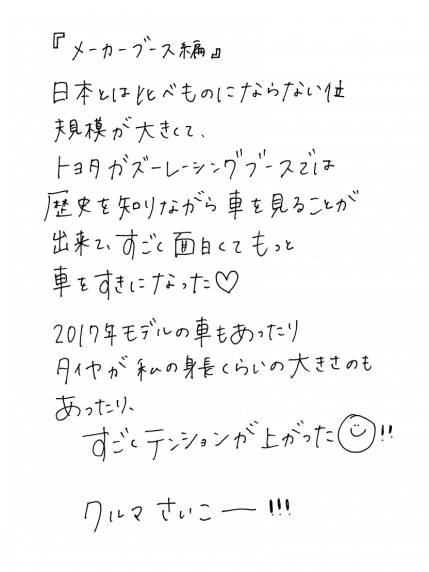 『メーカーブース編』
日本とは比べものにならない位
規模が大きくて、
トヨタガズーレーシングブースでは
歴史を知りながら車を見ることが
出来て、すごく面白くてもっと
車をすきになった♡
2017年モデルの車もあったり
タイヤが私の身長くらいの大きさのも
あったり、
すごくテンションが上がった☺!!
クルマさいこー!!!